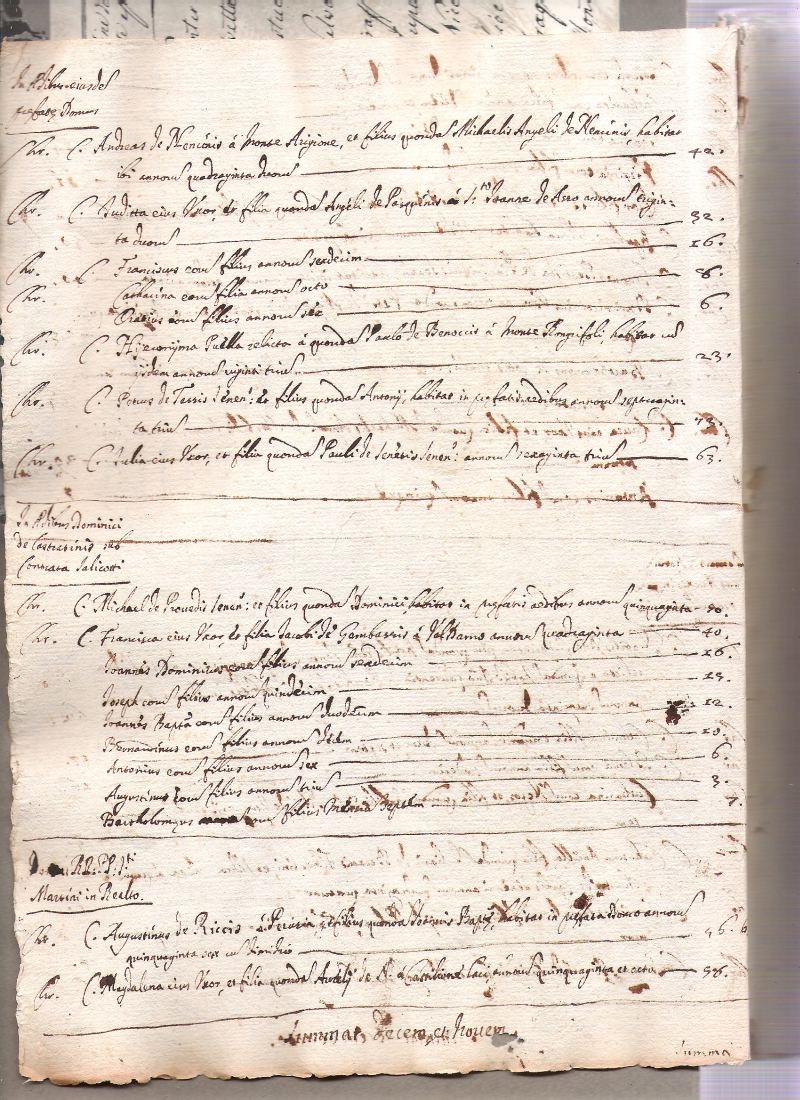 In Ædibus eiusdẽ
prefatę Domus
Chr. C. Andreas de Nencinis à Monte Arigione, et filius quondã Michaelis Angeli de Nencinis, habitat
ibi annorũ quadraginta duorũ 42.
Chr. C. Juditta eius Uxor, et filia quondã Angeli de Pasquinis à S.to Joanne de Asso annorũ trigin-
ta duorũ 32.
Chr. C. Franciscus eorũ filius annorũ sexdecim 16.
Chr. C. Catharina eorũ filia annorũ octo 8.
Oratius eorũ filius annorũ sex 6.
Chr. C. Hieronyma Puella relicta à quondã Paulo de Benoccis à Monte habitat
ijsdem annorũ viginti triũ 23.
Chr. C. Petrus de Senen: et filius quondã Antonij, habitat in prefatis ædibus annorũ septuagin-
ta triũ 73.
Chr. C. Julia eius Uxor, et filia quondã Pauli de Senen: annorũ sexaginta triũ 63.
In Ædibus Dominici
de Castratinis sub
Contrata Salicotti
Chr. C. Michael de Senen: et filius quondã Dominici habitat in prefatis aedibus annorũ quinquaginta 50.
Chr. C. Francisca eius Uxor, et filia Jacobi de Gambassis à annorũ Quadraginta 40.
Joannes Dominicus eorũ filius annorũ sexdecim 16.
Joseph eorũ filius annorũ quindecim 15.
Joannes Bapta eorũ filius annorũ duodecim 12.
Bernardinus eorũ filius annorũ decem 10.
Antonius eorũ filius annorũ sex 6.
Augustinus eorũ filius annorũ triũ 3.
Bartholomęus eorũ filius Mensiũ Septem 7.
RR: PP: S.ti
Martini in Realto
Chr. C. Augustinus de Riccis à et filius quondã Baptę, habitat in prefata domo annorũ
quinquaginta sex cũ dimidio 56.
Chr. C. Magdalena eius Uxor, et filia quondã Aurelij de N. à Castilione annorũ Quinquaginta et octo 58.
Summat Decem et Novem
Summa